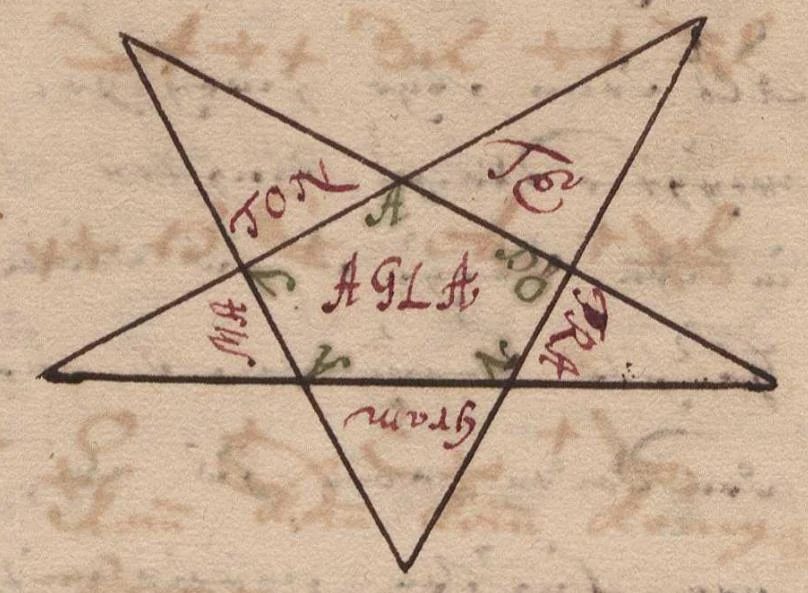 TE
TRA
Gram
MA
TON
A
DO
N
AGLA